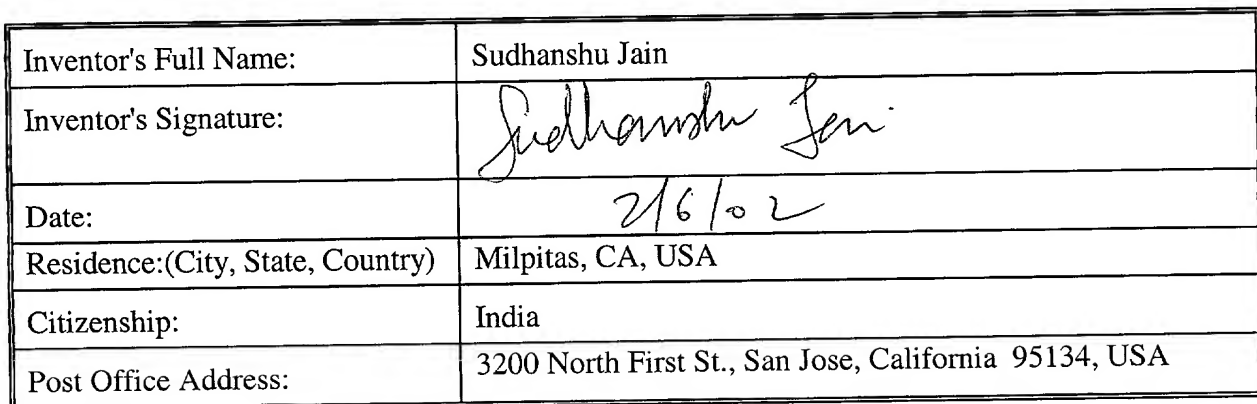 Inventor's Full Name: Sudhanshu Jain
Inventor's Signature: Sudhanshu Jain
Date: 2/6/02
Residence:(City, State, Country) Milpitas, CA, USA
Citizenship: India
Post Office Address: 3200 North First St., San Jose, California 95134, USA